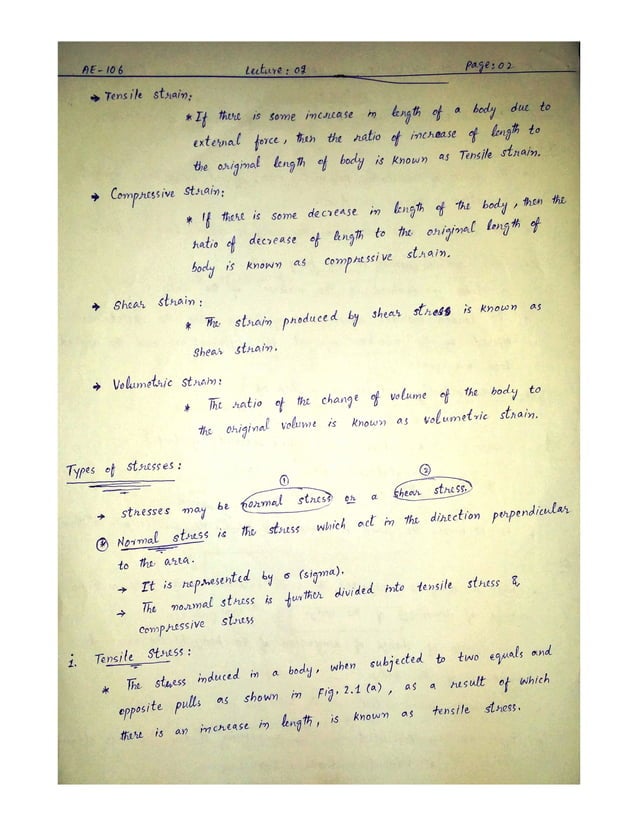 AE-106 Lecture: 02 Page: 02
→ Tensile strain:
* If there is some increase in length of a body due to
external force, then the ratio of increase of length to
the original length of body is known as Tensile strain.
→ Compressive strain:
* If there is some decrease in length of the body, then the
ratio of decrease of length to the original length of
body is known as compressive strain.
→ Shear strain:
* The strain produced by shear stress is known as
shear strain.
→ Volumetric strain:
* The ratio of the change of volume of the body to
the original volume is known as volumetric strain.
Types of stresses:
① ②
→ stresses may be normal stress or a shear stress.
① Normal stress is the stress which act in the direction perpendicular
to the area.
→ It is represented by σ (sigma).
→ The normal stress is further divided into tensile stress &
compressive stress
i. Tensile Stress:
* The stress induced in a body, when subjected to two equals and
opposite pulls as shown in Fig. 2.1 (a), as a result of which
there is an increase in length, is known as tensile stress.